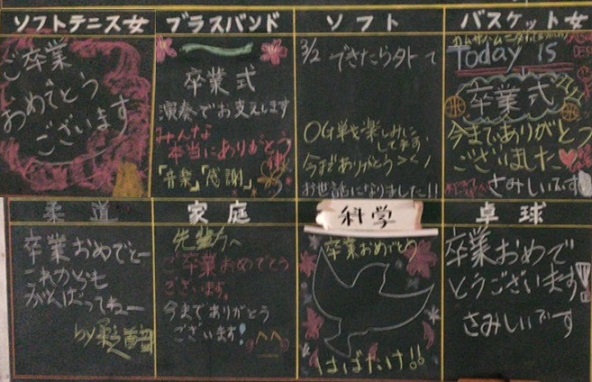 ソフトテニス女
ご卒業
おめでとう
ございます
ブラスバンド
卒業式
演奏でお支えします
みんな
本当にありがとう
「音楽」「感謝」
ソフト
3/2 できたら外で
OG戦楽しみに
してます
今までありがとう
お世話になりました!!
バスケット女
Today is
卒業式
今までありがとう
ございました♥
さみしいです
柔道
卒業おめでとー
これからも
がんばってねー
by
家庭
先輩方へ
ご卒業おめでとう
ございます。
今までありがとう
ございます!
科学
卒業おめでとう
はばたけ!!
卓球
卒業おめで
とうございます!
さみしいです